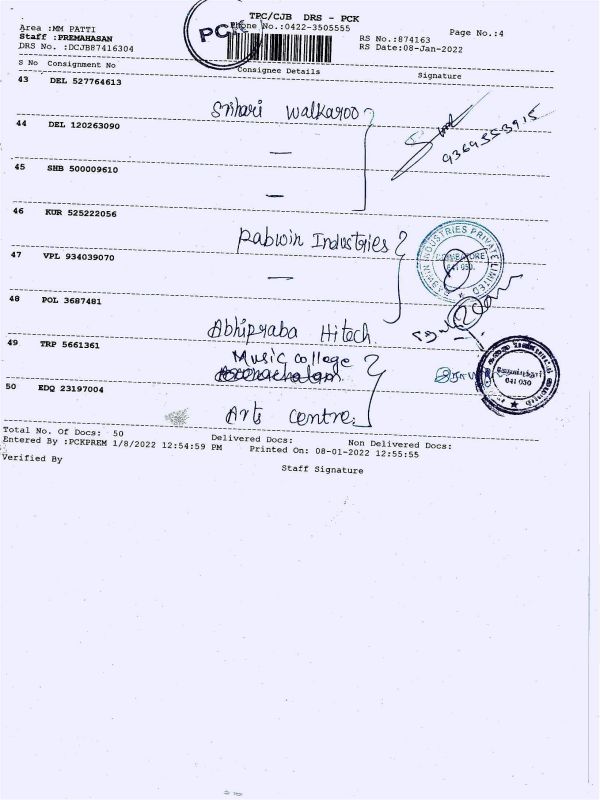 TPC/CJB DRS - PCK
Area :MM PATTI
Phone No.:0422-3505555
Page No.:4
Staff :PREMAHASAN
PCK
RS No.:874163
DRS No. :DCJB87416304
RS Date:08-Jan-2022
S No Consignment No Consignee Details Signature
43 DEL 527764613
Srihari Walkaroo
44 DEL 120263090
—
9369553915
45 SHB 500009610
—
46 KUR 525222056
Pabwin Industries
47 VPL 934039070
—
COIMBATORE
641 050.
48 POL 3687481
Abhipraba Hitech
49 TRP 5661361
Music college
641 050
50 EDQ 23197004
Arts centre.
Total No. Of Docs: 50 Delivered Docs: Non Delivered Docs:
Entered By :PCKPREM 1/8/2022 12:54:59 PM Printed On: 08-01-2022 12:55:55
Verified By Staff Signature